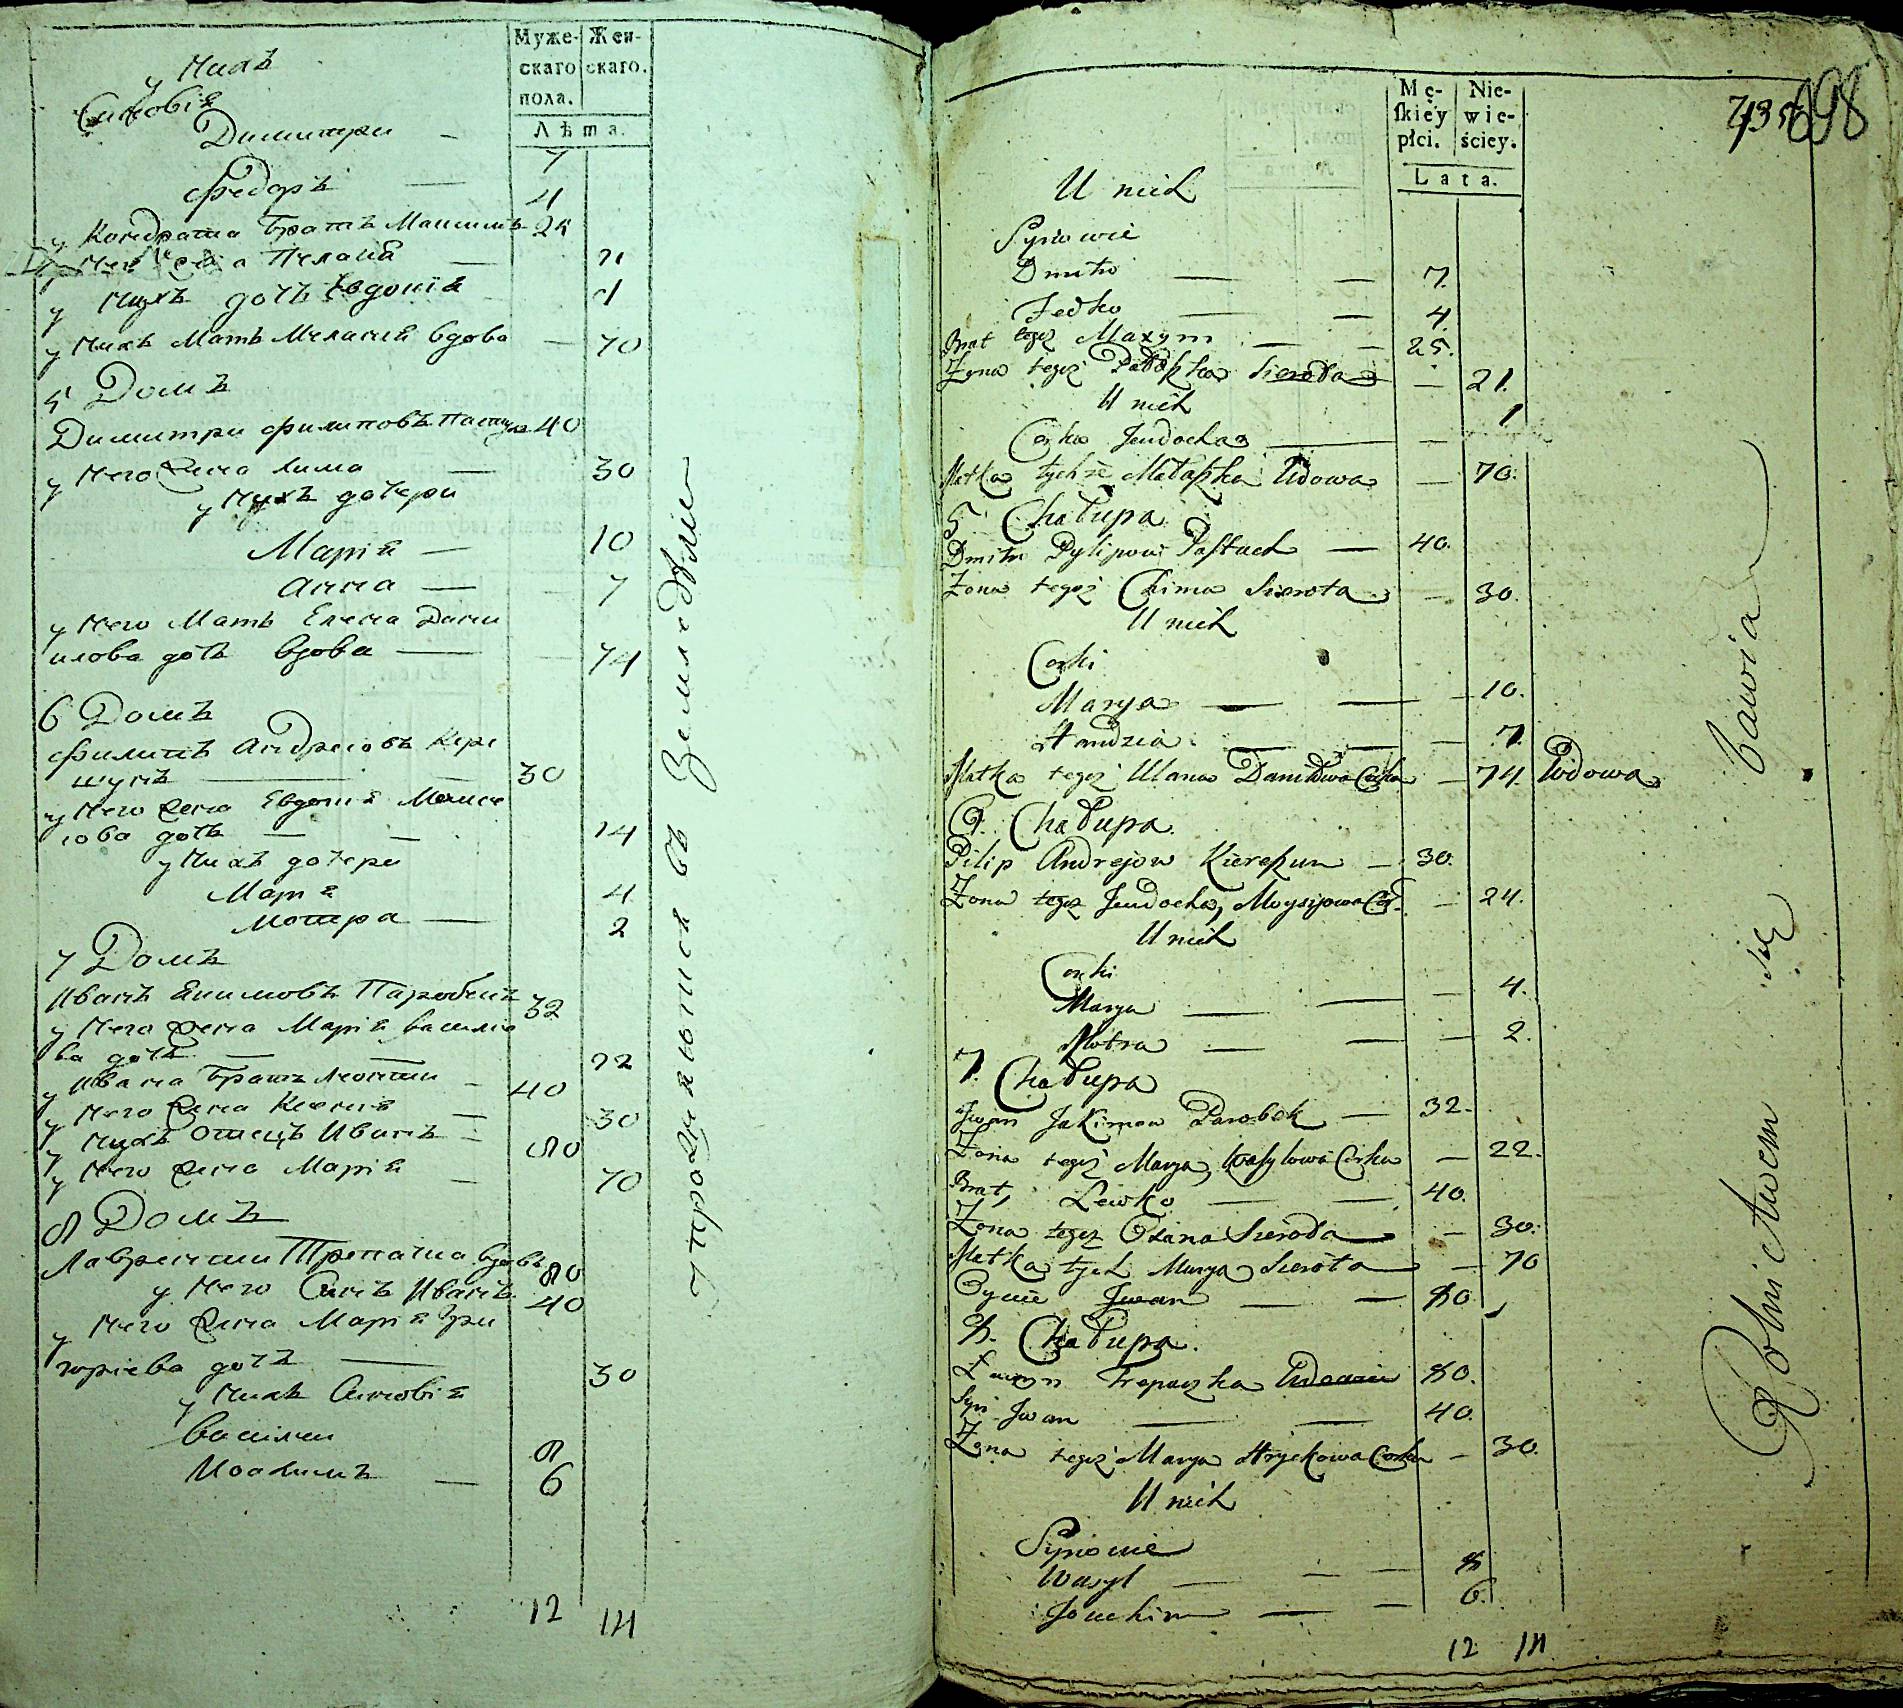 Муже- Жен-
скаго скаго.
пола.
Лѣта.
у нихъ
Синовія
Димитри — 7
Федоръ — 4
у Кондрата братъ Максимъ 25
у него жена Пелагія — 21
у нихъ дочь Евдокія 1
у нихъ мать Меланія вдова — 70
5 Домъ
Димитри Филиповъ Пастухъ 40
у него жена Хима — 30
у нихъ дочери
Марія — 10
Анна — 7
у него мать Елена Дани
илова дочь вдова — 74
6 Домъ
Филипъ Андреювъ Кере
шунъ — 30
у него жена Евдокія Моисе
іова дочь — 24
у нихъ дочери
Марія 4
Мотра — 2
7 Домъ
Иванъ Якимовъ Паробокъ 32
у него жена Марія Василіе
ва дочь — 22
у Ивана братъ Леонтіи — 40
у него жена Ксенія — 30
у нихъ отецъ Иванъ — 80
у него жена Марія — 70
8 Домъ
Лаврентіи Трепачка вдовъ 80
у него синъ Иванъ 40
у него жена Марія Гри
горіева дочь — 30
у нихъ Синовія
Василіи 8
Иоакимъ — 6
12 14
упражняются въ Земледѣліе
Mę- Nie-
skiey wie-
płci. ściey.
Lata.
698
U nich
Synowie
Dmitro — — 7.
Fedko — — 4.
Brat tegoż Maxym — — 25.
Żona tegoż Pałaszka Sierota — 21.
U nich 1
Corka Jewdocha — —
Matka tychże Małaszka Wdowa — 70.
5. Chałupa
Dmitro Pylipow Pastuch — 40.
Żona tegoż Chima Sierota — 30.
U nich
Corki
Marya — — — 10.
Handzia. — — — 7.
Matka tegoż Ulana Daniłowa Corka — 74. Wdowa
6. Chałupa.
Pilip Andrejow Kiereszun — 30.
Żona tegoż Jewdocha, Moysijowa Cor. — 24.
U nich
Corki
Marya — — — 4.
Motra — — — 2.
7. Chałupa
Iwan Jakimow Parobok — 32.
Żona tegoż Marya, Wasylowa Corka — 22.
Brat, Lewko — — 40.
Żona tegoż Oxana Sieroda — 30.
Matka tych Marya Sierota — 70
Oyciec Iwan — — 80.
8. Chałupa.
Ławryn Trepaczka Wdowiec 80.
Syn Iwan — — 40.
Żona tegoż Marya Hryckowa Corka — 30.
U nich
Synowie
Wasyl — — — 8
Joachim — — 6.
12 14
Rolnictwem się bawią